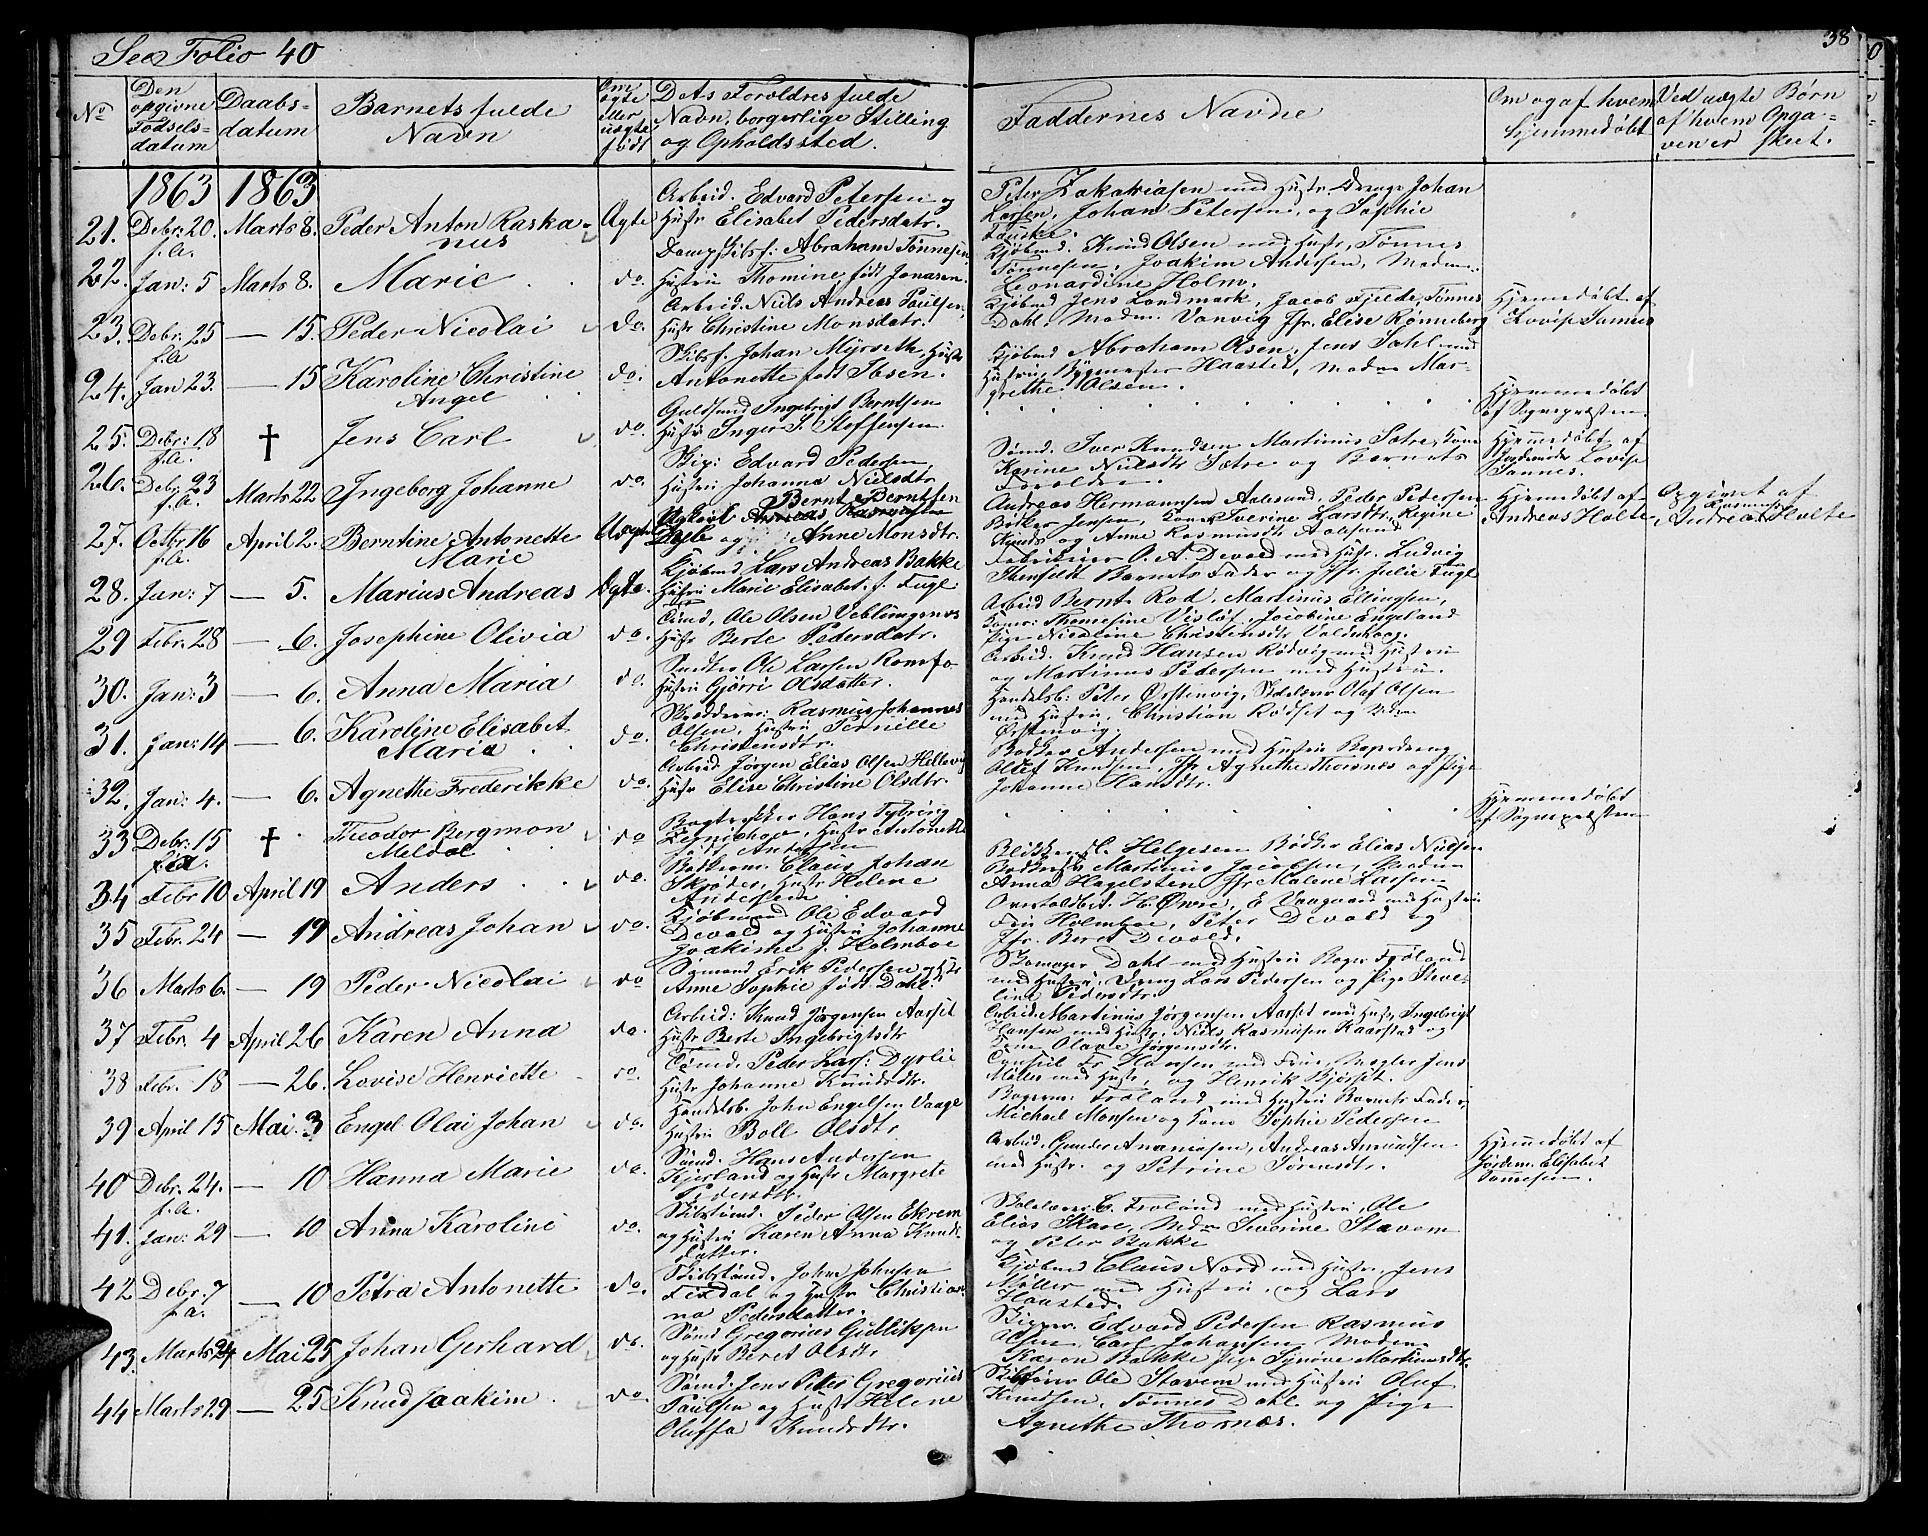 See Folio 40
38
No
Den opgivne Fødsels-datum
Daabs-datum
Barnets fulde Navn
Om ægte eller uægte født
Dets Forældres fulde Navn, borgerlige Stilling og Opholdssted.
Faddernes Navne
Om og af hvem hjemmedøbt
Ved uægte Børn af hvem Opga-ven er skeet.
1863 1863
21. Debr: 20. f.A. Marts 8. Peder Anton Raska-nus Ægte Arbeid. Edvard Petersen og Hustr Elisabet Pedersdatr. Peter Zakariasen med Hustr Drenge Johan Larsen, Johan Petersen, og Sophie
22. Jan: 5 Marts 8. Marie do. Dampskibsf: Abraham Tønnesen Hustru Thomine født Jonasen. Kjøbmd. Knud Olsen med Hustr, Tønnes Tønnesen, Joakim Andersen, Madm. Leonardine Holm.
23. Debr: 25 f.A — 15. Peder Nicolai do. Arbeid: Niels Andreas Paulsen, Hustr Christine Monsdatr. Kjøbmd Jens Landmark, Jacob Fjelde, Tønnes Dahl. Madm. Vanvig Jfr. Elise Rønneberg Hjemmedøbt af
24. Jan 23. — 15 Karoline Christine Angel do. Skibsf. Johan Myrseth Hustr Antonette født Ibsen. Kjøbmd Abraham Olsen, Jens Dahl med Hustru, Bygmester Haasted, Madm Mar-grethe Olsen.
25. Debr: 18 f.A. † Jens Carl do. Guldsmed Ingebrigt Berntsen Hustr Inger S. Steffensen. Hjemmedøbt af Sognepresten.
26. Debr: 23 f.A. Marts 22 Ingeborg Johanne do. Skip: Edvard Pedersen Hustru Johanna Nielsdtr Sømd. Iver Knudsen Martinus Sætre, Kone Karine Nielsdtr Sætre og Barnets Forældre. Hjemmedøbt af Jordemoder Lovise Tønnes.
27. Octbr 16 f.A. April 2. Berntine Antonette Marie Uægte Bernt Berntsen og Anne Monsdtr. Andreas Hermannsen Aalesund, Peder Pedersen Bødker Jensen, Kone Iverine Larsdtr. Regine og Anne Rasmusdtr Aalesund Hjemmedøbt af Andreas Holte Opgivet af Andreas Holte
28. Jan: 7 — 5. Marius Andreas Ægte. Kjøbmd Lars Andreas Bakke Hustru Marie Elisabet f. Fugl. Fabrikeier O. A. Devold med Hustr. Ludvig Barnets Fader og Jfr. Julie Fugl
29 Febr. 28 — 6. Josephine Olivia do. Ole Olsen Veblungsnes Hustr Berte Pedersdatr. Arbeid Bernt Rød, Martinus Ellingsen, Thomesine Visløf, Jacobine Engeland Pige Nicoline Christensdtr Valderhaug.
30. Jan: 3 — 6. Anna Maria do. Ole Larsen Romsfo Hustru Gjørri Olsdatter. Arbeid. Knud Hansen Rødvig med Hustru og Martinus Pedersen med Hustru.
31. Jan: 14 — 6. Karoline Elisabet Maria do. Skrædderm: Rasmus Johannes Olsen, Hustru Pernille Christensdtr. Handelsb: Peter Ørstenvig, Skolelærer Olaf Olsen med Hustru, Christian Rødset og Ørstenvig.
32. Jan: 4. — 6. Agnethe Frederikke do. Arbeid Jørgen Elias Olsen Hellevig Hustr Elise Christine Olsdtr. Bødker Andersen med Hustru Olaf Knudsen, Jfr Agnethe Thorsnes og Pige Johanne Hansdtr.
33 Debr: 15 f.A. † Theodor Bergmon Meldal do Bogtrykker Hans Hustr Antonette Andersen Hjemmedøbt af Sognepresten
34 Febr 10 April 19 Anders do. Bødkerm. Claus Johan Skjødes, Hustr Helene Andersen. Helgesen Bødker Elias Nielsen Bødker Martinus Jacobsen, Madm Anna Hagelsten Jfr Malene Larsen
35 Febr. 24 — 19 Andreas Johan do. Kjøbmand Ole Edvard Devold og Hustru Johanne Joakine f. Holmboe Overtoldbet. H. Øwre, E Vaagaard med Hustru Fru Holmboe, Peter Devold og Jfr. Beret Devold.
36 Marts 6. — 19 Peder Nicolai do Sømand Erik Pedersen og Hustr Anne Sophie født Dahl. Skomager Dahl med Hustru Bager Frøland med Hustru, Dreng Lars Pedersen og Pige Pedersdtr.
37 Febr. 4 April 26 Karen Anna do. Arbeid: Knud Jørgensen Aarset Hustr Berte Ingebrigtsdtr Arbeid. Martinus Jørgensen Aarset med Hustr, Ingebrigt Hansen med Hustr. Niels Rasmusen Kaarstad og Olave Jørgensdtr.
38 Febr. 18 — 26. Lovise Henriette do. Peder Lars: Dyrli Hustr Johanne Knudsdtr. Consul Fr. Hansen med Frue, Mægler Jens Møller med Hustr, og Henrik Bjørset.
39 April 15 Mai. 3 Engel Olai Johan do. Handelsb. John Engelsen Vaage Hustru Boll Olsdtr. Bagerm: Froland med Hustru Barnets Fader, Michael Monsen og Kone Sophie Pedersen
40 Debr. 24. f.A. — 10 Hanna Marie do. Sømd. Hans Andersen Kjerland og Hustr Margrete Pedersdtr. Arbeid. Gunder Andreas Amundsen med Hustr. og Petrine Sørensdtr. Hjemmedøbt af Jordem. Elisabet Tønnesen.
41. Jan: 29 — 10 Anna Karoline do. Skibstømd. Peder Olsen Ekrem og Hustru Karen Anna Knuds-datter. Skolelærer C. Froland med Hustru, Ole Elias Skare, Madm Severine Stavem og Peter Bakke
42 Debr. 7 f.A. — 10 Petra Antonette do. Skibstømd. Johan Johnsen og Hustr Christian-na Pedersdatter. Kjøbmd Claus Nord med Hustr. Jens Møller med Hustru, og Lars Haasted.
43. Marts 24 Mai 25 Johan Gerhard do. Sømd Gregorius Gudliksen og Hustr Beret Olsdtr Skipper. Edvard Pedersen Rasmus Olsen, Carl Johansen Madm. Karen Bakke Pige Synøve Martinusdtr
44 Marts 29 — 25 Knud Joakim do. Sømd. Jens Peter Gregorius Paulsen og Hustr Helene Oluffa Knudsdtr. Ole Stavem med Hustru Oluf Knudsen, Tønnes Dahl og Pige Agnethe Thornæs.